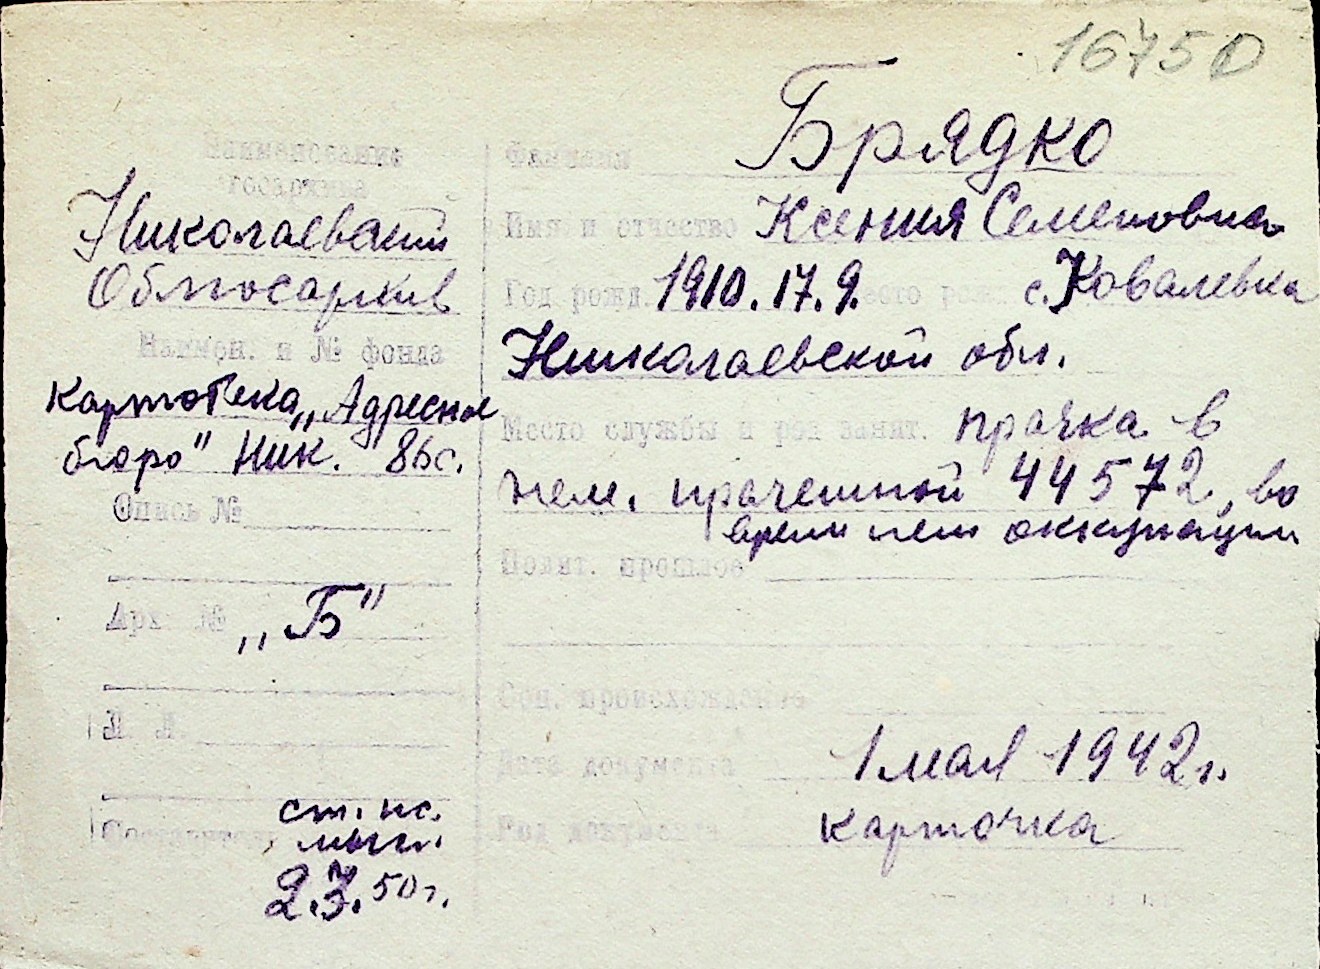 16750
Наименование
госархива
Николаевский
Облгосархив
Наимен. и № фонда
Картотека „Адресное
бюро" Ник. 86с.
Опись №
Арх. № „Б"
Л. Л.
Составитель ст. нс.
2.3.50г.
Фамилия Брядко
Имя и отчество Ксения Семеновна
Год рожд. 1910.17.9. Место рожд. с. Ковалевка
Николаевской обл.
Место службы и род занят. прачка в
нем. прачешной 44572, во
время нем оккупации
Полит. прошлое
Соц. происхождение
Дата документа 1 мая 1942г.
Род документа карточка